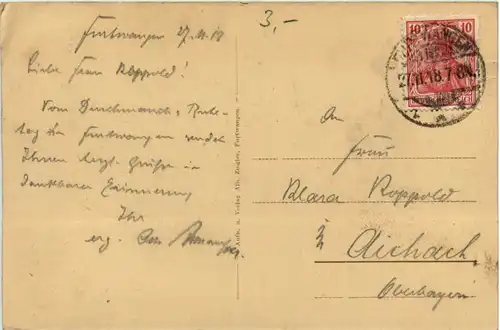 3,-
Furtwangen 27.11.18
Liebe Frau Roppold!
Vom Durchmarsch, Ruhe-
tag in Furtwangen sendet
Ihnen herzl. Grüße in
dankbarer Erinnerung
Ihr
erg.
Aufn. u. Verlag Alb. Furtwangen.
10 10
An
Frau
Klara Roppold
in Aichach
Oberbayern